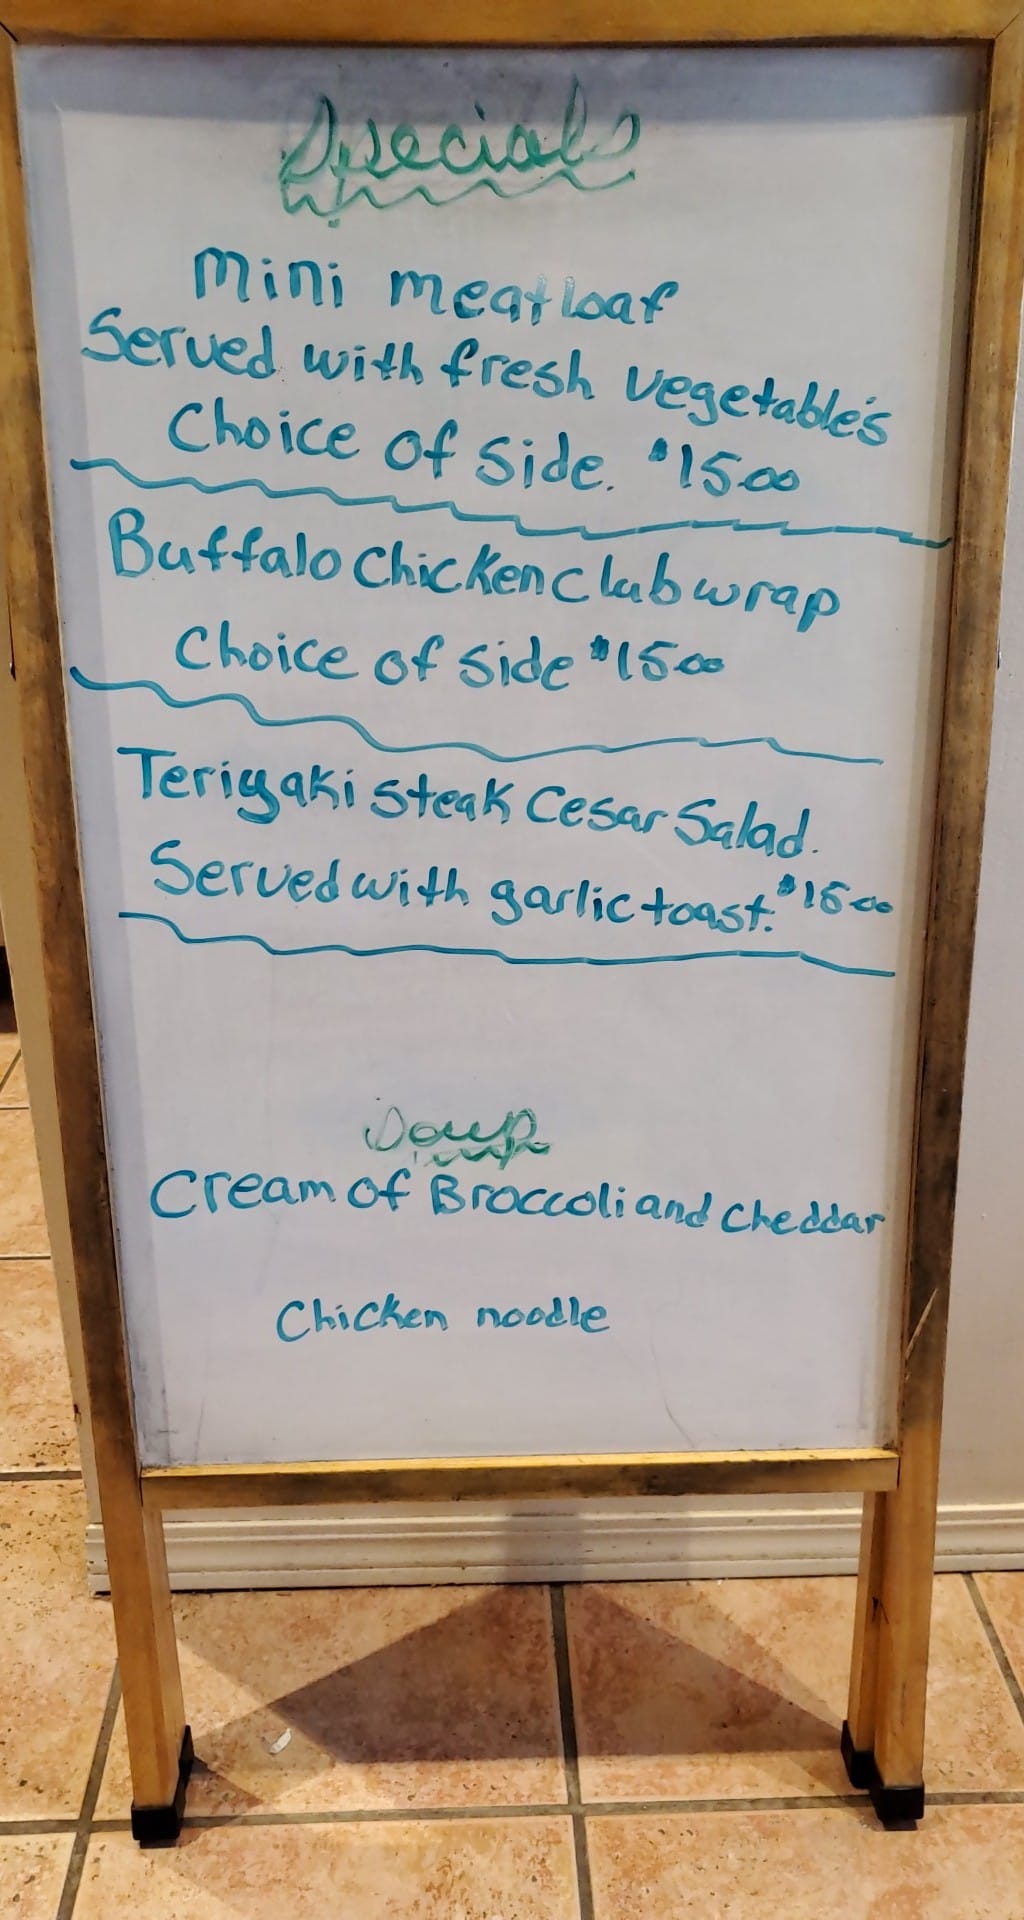 Specials
mini meatloaf
Served with fresh vegetable's
Choice of side. $15.00
Buffalo Chicken Club wrap
Choice of side $15.00
Teriyaki steak Cesar Salad.
Served with garlic toast. $15.00
Soup
Cream of Broccoli and Cheddar
Chicken noodle